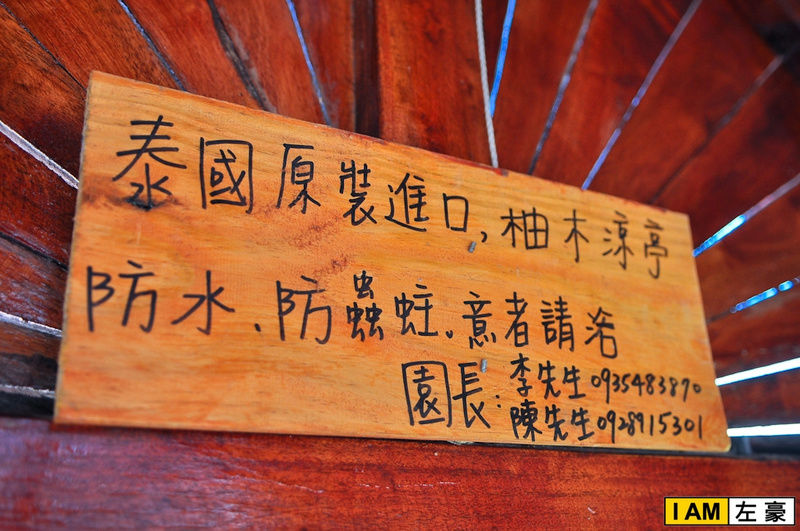 泰國原裝進口,柚木涼亭
防水、防蟲蛀。意者請洽
園長:李先生0935483870
陳先生0928915301
I AM 左豪